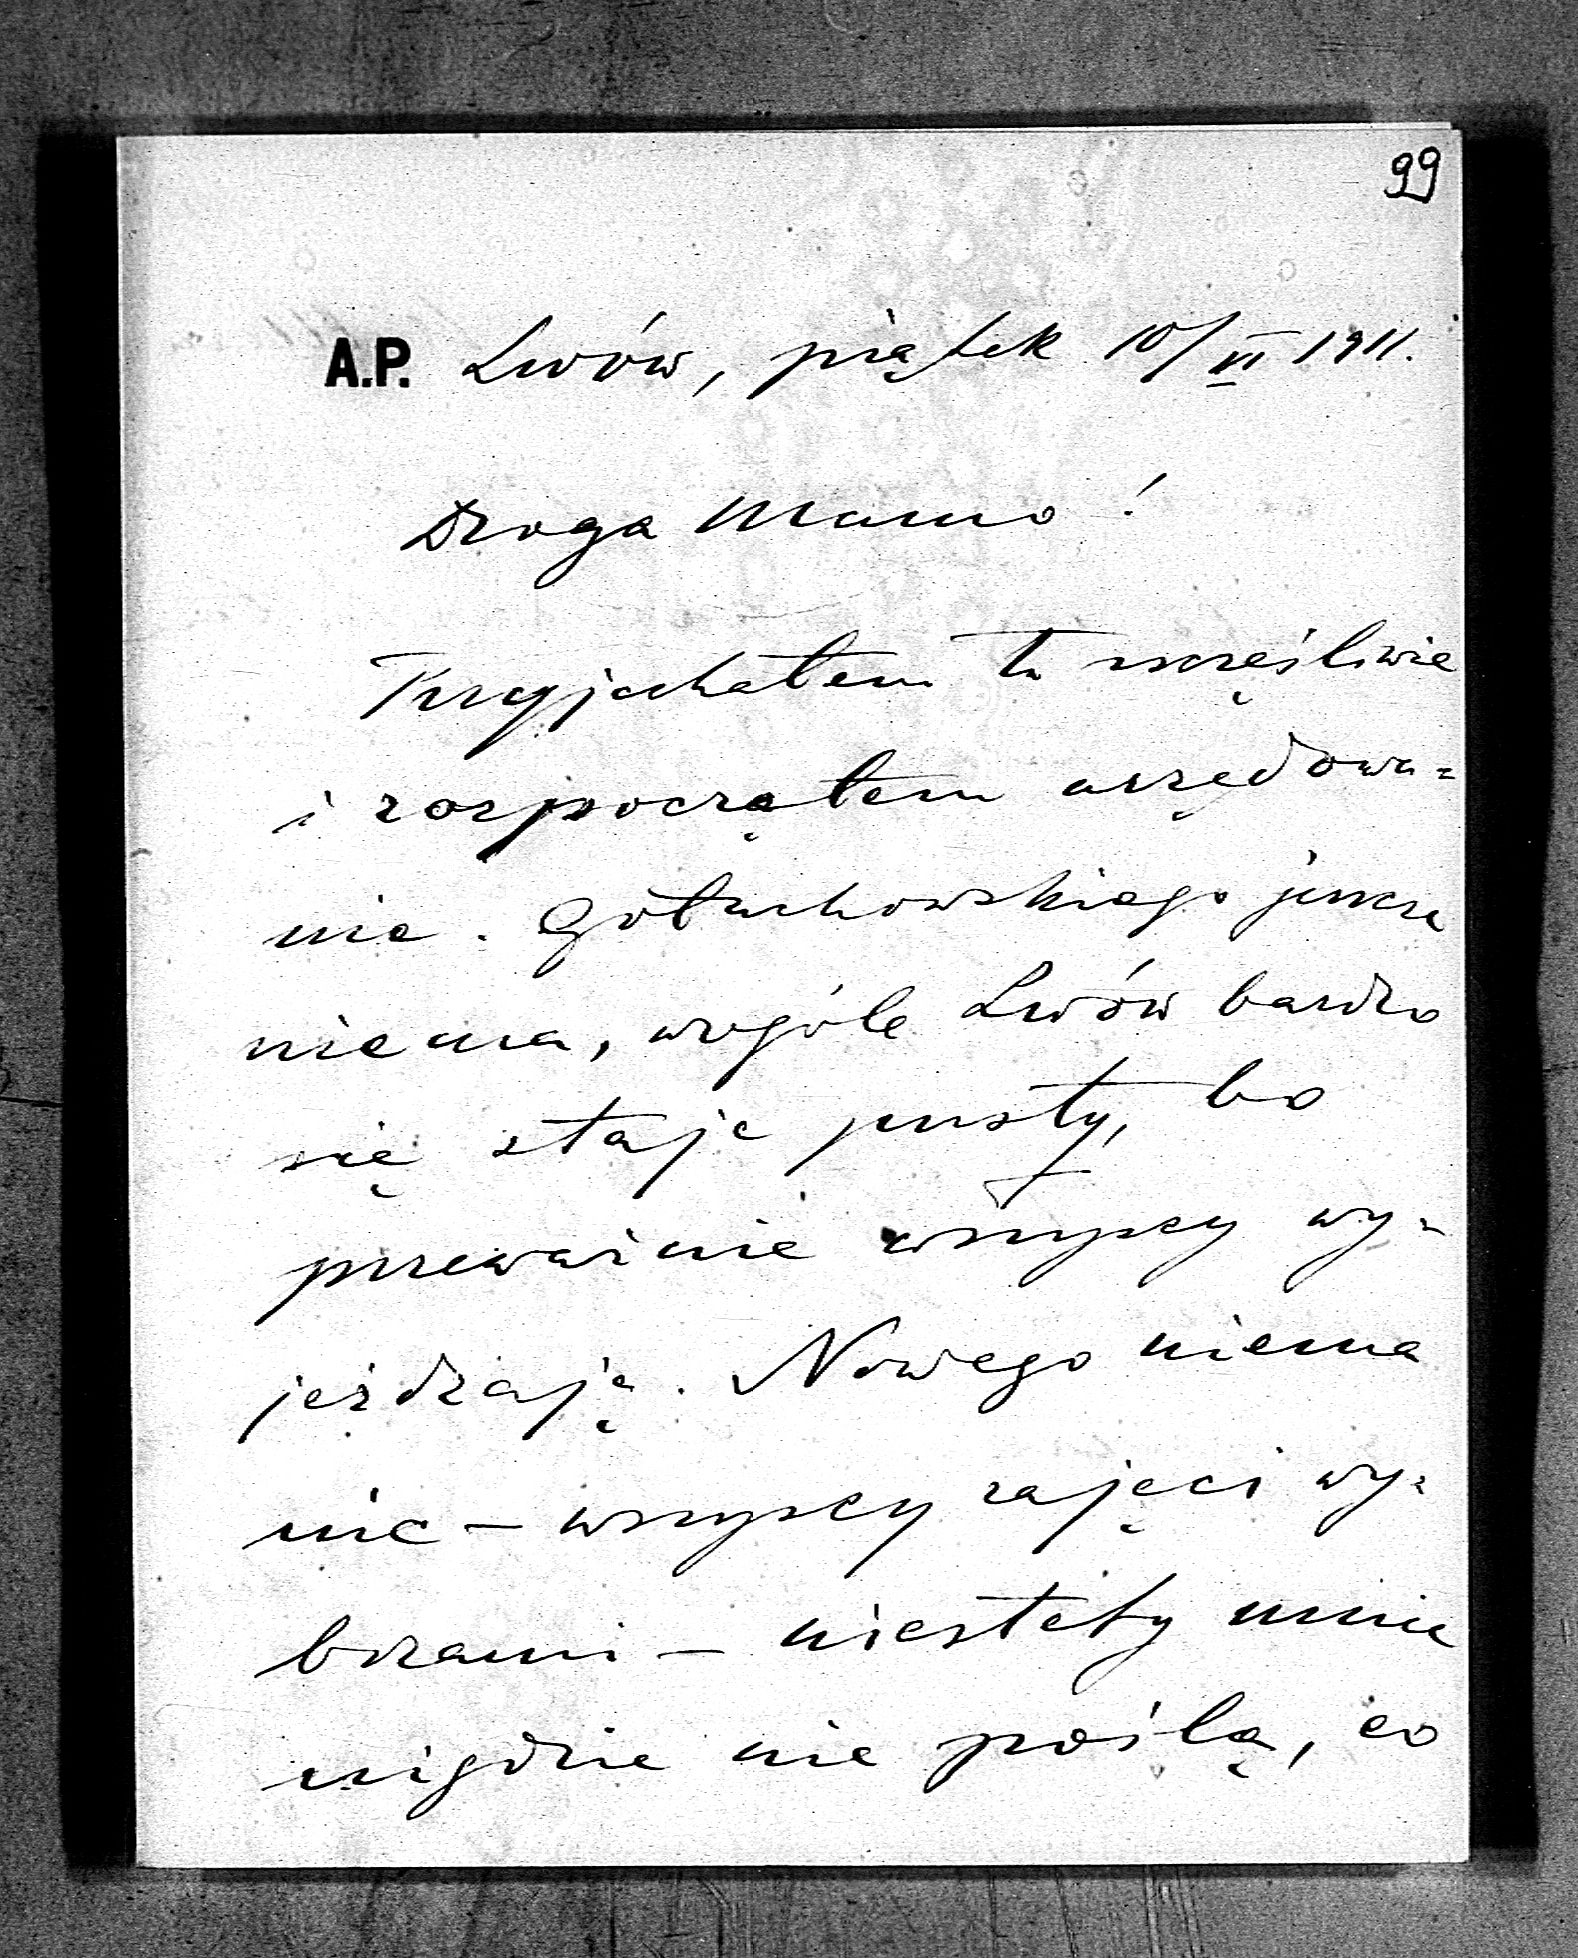 99
A.P. Lwów, piątek 10/VI 1911.
Droga Mamo!
Przyjechałem tu szczęśliwie
i rozpocząłem urzędowa=
nie. Gołuchowskiego jeszcze
niema, wogóle Lwów bardzo
się staje pusty, bo
przeważnie wszyscy wy=
jeżdżają. Nowego niema
nic – wszyscy zajęci wy=
borami – niestety mnie
nigdzie nie poślą, co